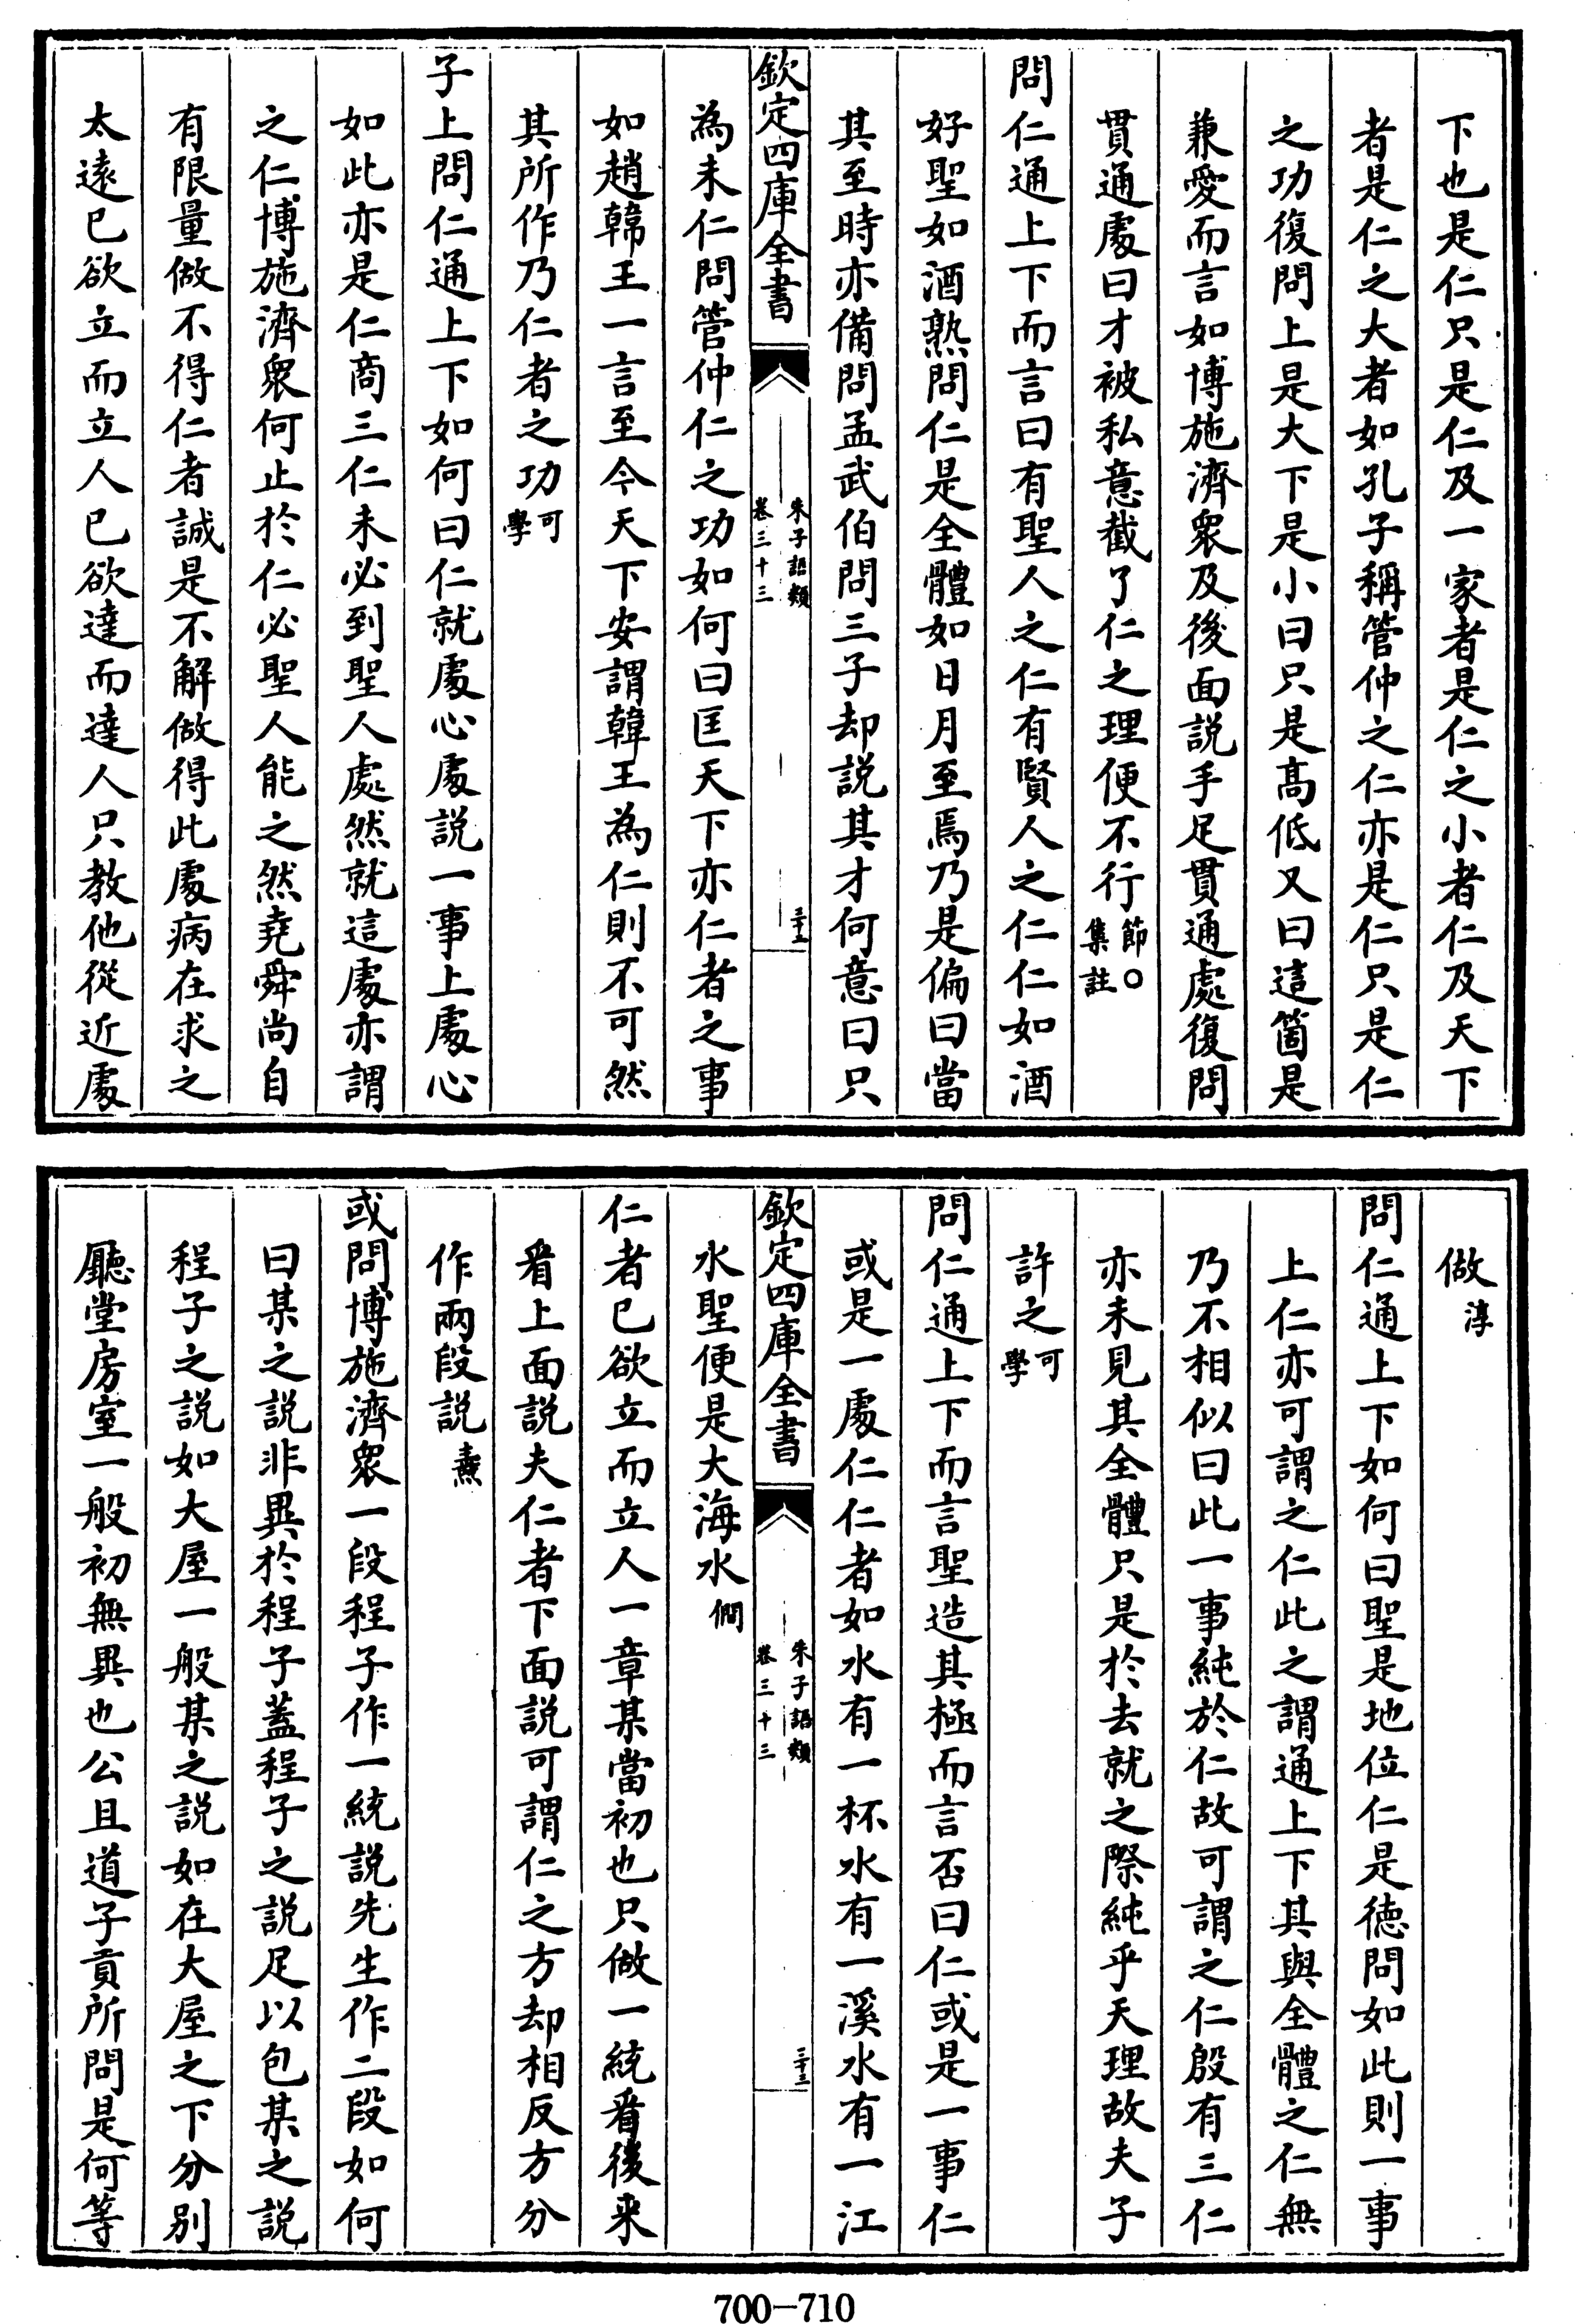 下也是仁只是仁及一家者是仁之小者仁及天下
者是仁之大者如孔子稱管仲之仁亦是仁只是仁
之功復問上是大下是小曰只是髙低又曰這箇是
兼愛而言如博施濟衆及後面説手足貫通處復問
貫通處曰才被私意截了仁之理便不行節○集註
問仁通上下而言曰有聖人之仁有賢人之仁仁如酒
好聖如酒熟問仁是全體如日月至焉乃是偏曰當
其至時亦備問孟武伯問三子却説其才何意曰只
欽定四庫全書
朱子語類
卷三十三
三十二
為未仁問管仲仁之功如何曰匡天下亦仁者之事
如趙韓王一言至今天下安謂韓王為仁則不可然
其所作乃仁者之功可學
子上問仁通上下如何曰仁就處心處説一事上處心
如此亦是仁商三仁未必到聖人處然就這處亦謂
之仁博施濟衆何止於仁必聖人能之然堯舜尚自
有限量做不得仁者誠是不解做得此處病在求之
太遠已欲立而立人已欲達而達人只教他從近處
做淳
問仁通上下如何曰聖是地位仁是徳問如此則一事
上仁亦可謂之仁此之謂通上下其與全體之仁無
乃不相似曰此一事純於仁故可謂之仁殷有三仁
亦未見其全體只是於去就之際純乎天理故夫子
許之可學
問仁通上下而言聖造其極而言否曰仁或是一事仁
或是一處仁仁者如水有一杯水有一溪水有一江
欽定四庫全書
朱子語類
卷三十三
三十三
水聖便是大海水僩
仁者已欲立而立人一章某當初也只做一統看後来
看上面説夫仁者下面説可謂仁之方却相反方分
作兩段説燾
或問博施濟衆一段程子作一統説先生作二段如何
曰某之説非異於程子蓋程子之説足以包某之説
程子之説如大屋一般某之説如在大屋之下分别
廳堂房室一般初無異也公且道子貢所問是何等
700—710